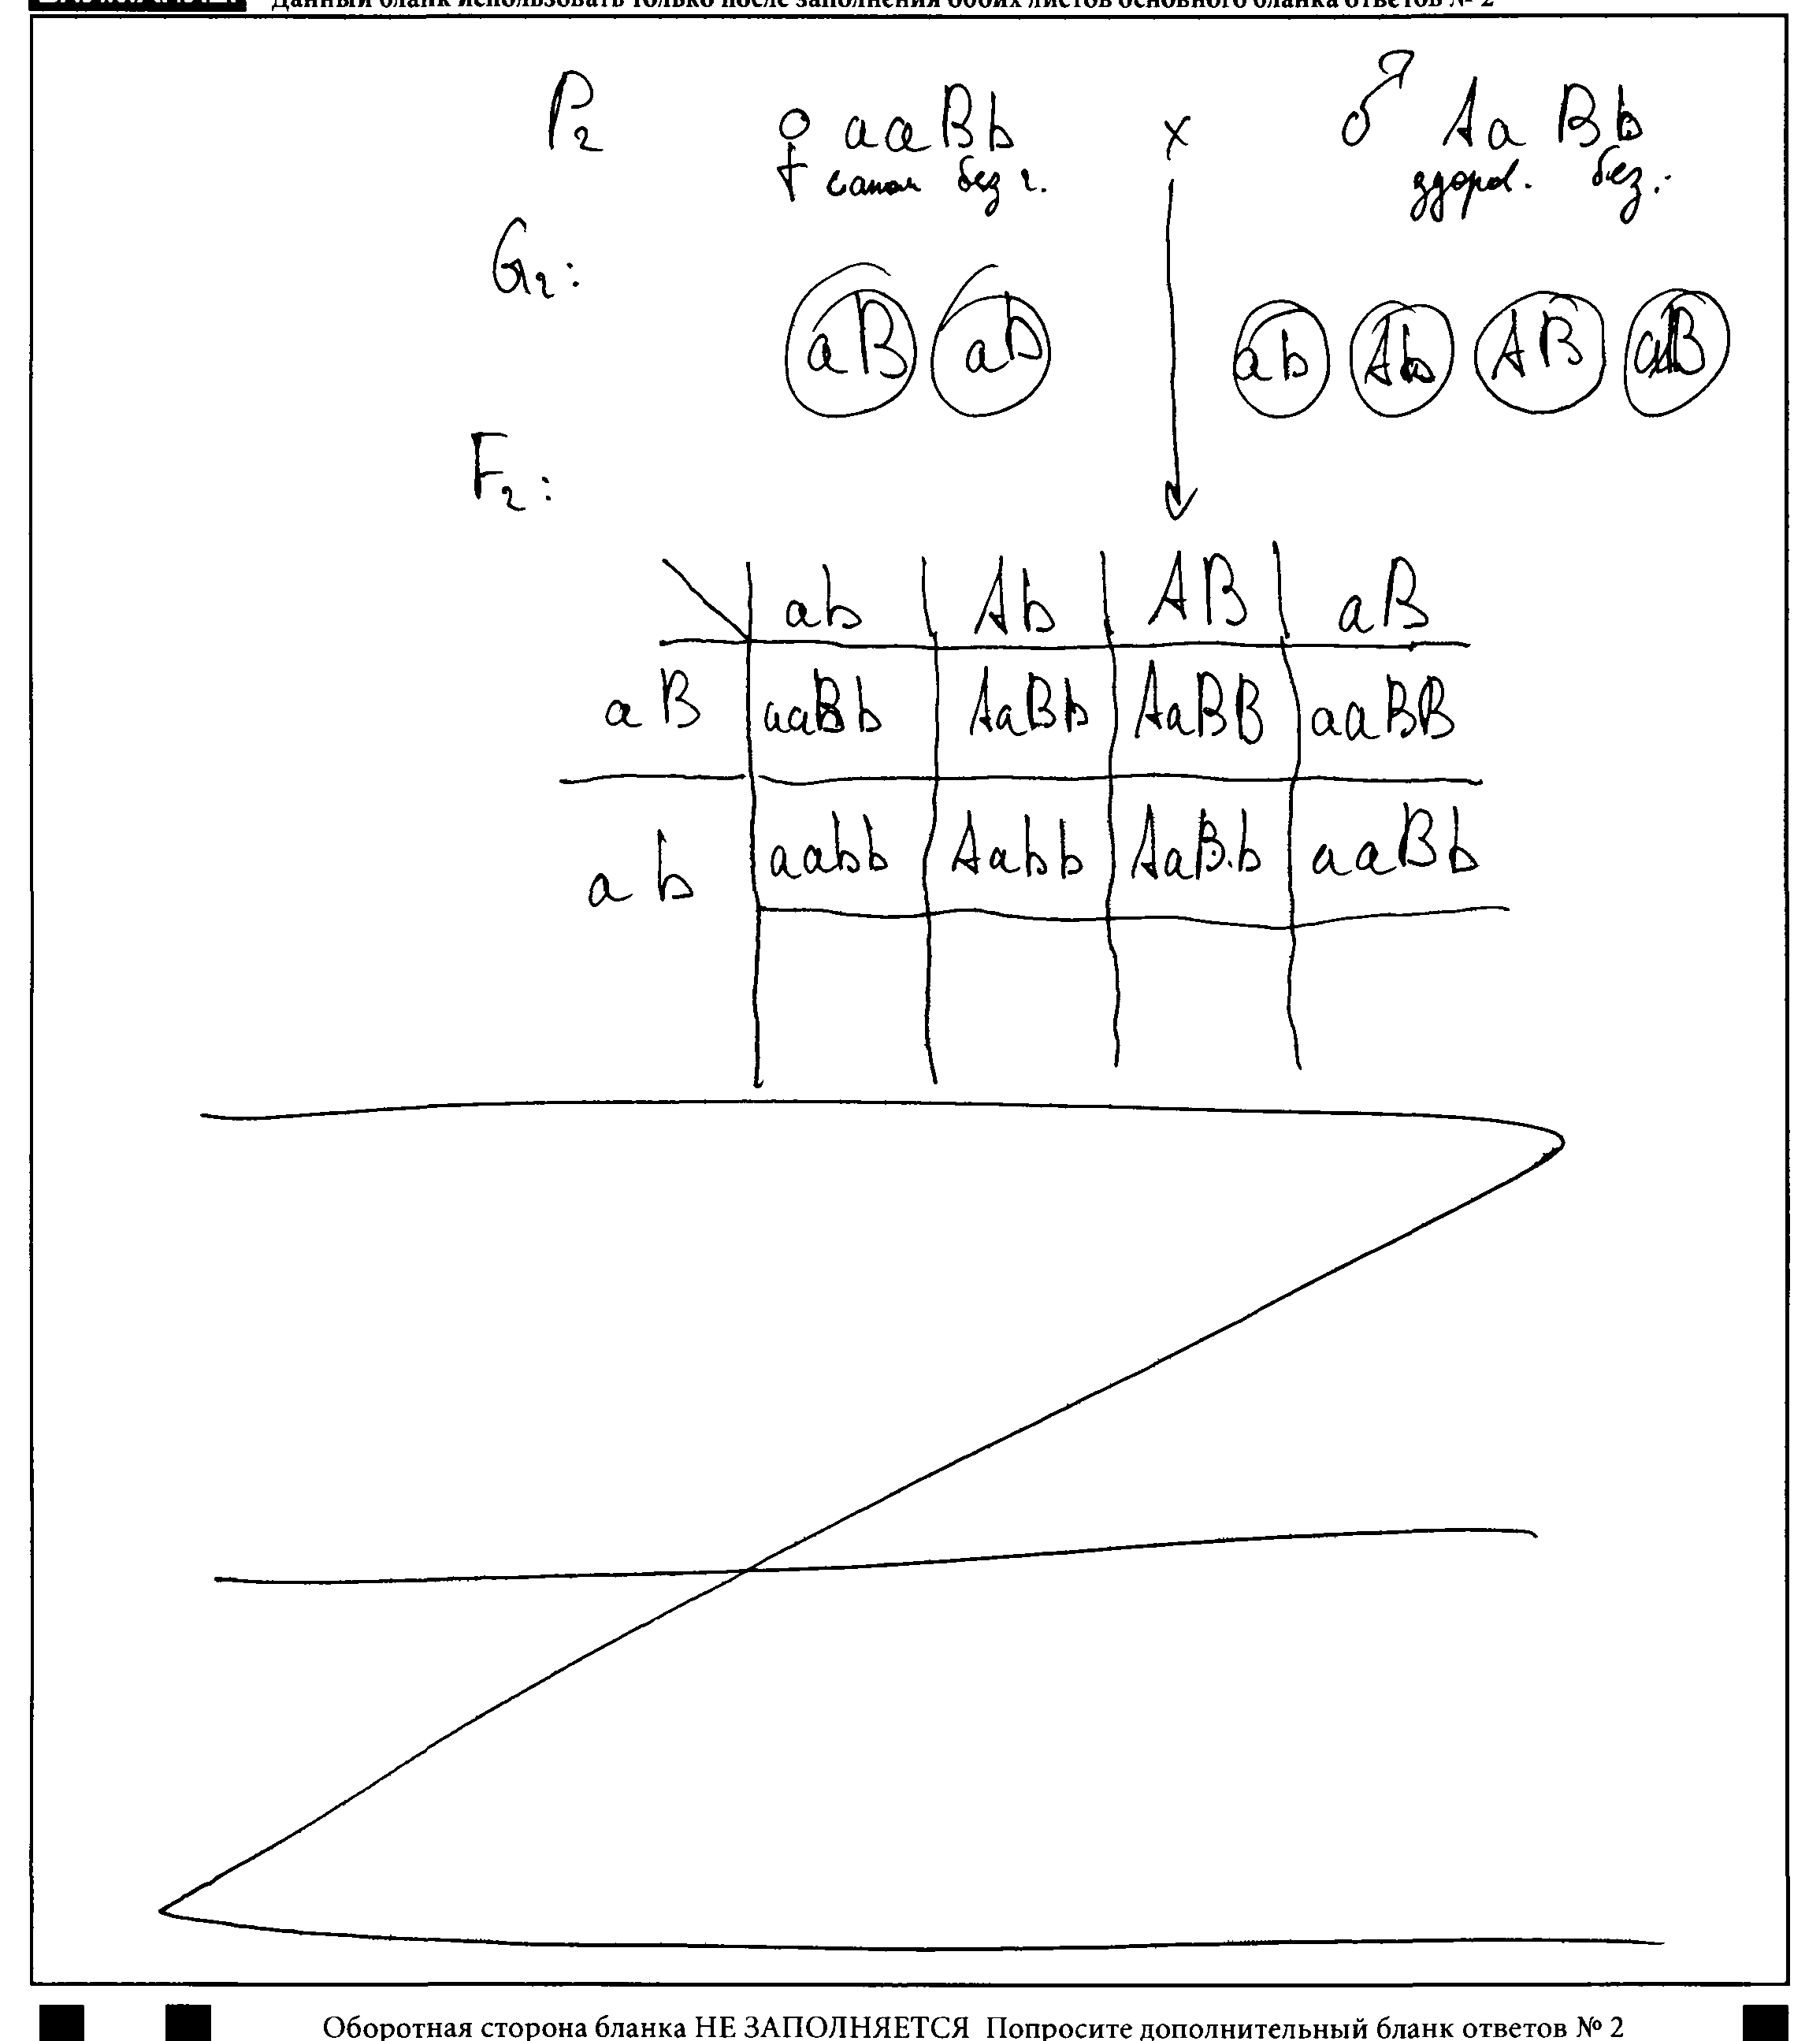 Данный бланк использовать только после заполнения обоих листов основного бланка ответов № 2
P₂ ♀ aaBb x ♂ AaBb
без г. здоров. без.
G₂: aB ab ab Ab AB aB
F₂:
ab Ab AB aB
aB aaBb AaBb AaBB aaBB
ab aabb Aabb AaBb aaBb
Оборотная сторона бланка НЕ ЗАПОЛНЯЕТСЯ Попросите дополнительный бланк ответов № 2